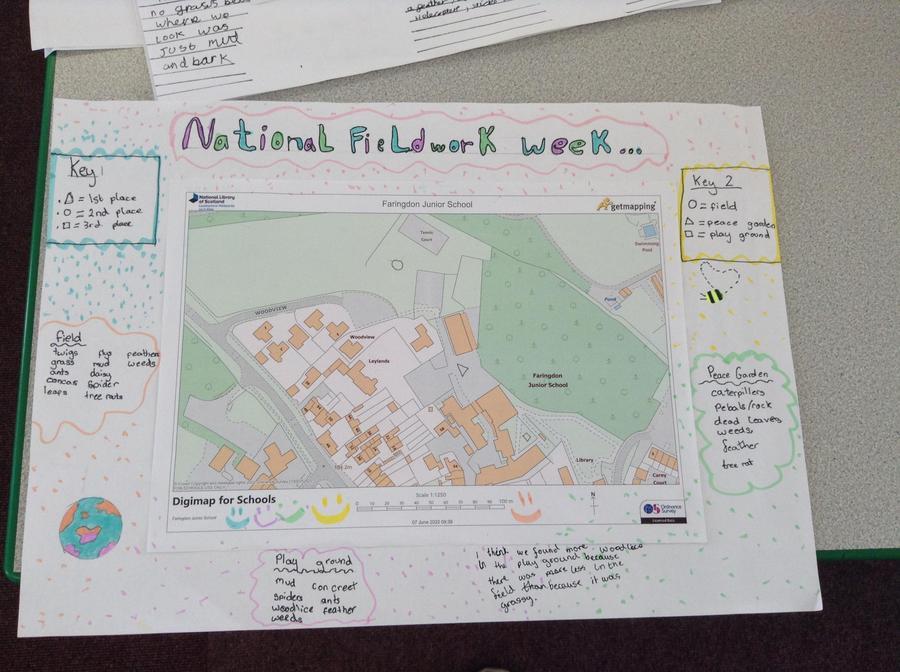 no grass be
where we
look was
Just mud
and bark
National Fieldwork week...
Key 1
. △ = 1st place
. O = 2nd place
. □ = 3rd place
Key 2
O = field
△ = peace garden
□ = play ground
National Library
of Scotland
Faringdon Junior School
getmapping
Tennis
Court
Swimming
Pool
Pond
WOODVIEW
Woodview
Leylands
Faringdon
Junior School
Library
Carey
Court
field
twigs fly feather
grass mud weeds
ants daisy
concas spider
leaps tree roots
Peace Garden
caterpillers
Pebals/rock
dead leaves
weeds
feather
tree rot
Digimap for Schools
Faringdon Junior School
Scale 1:1250
0 10 20 30 40 50 60 70 80 90 100 m
07 June 2022 09:38
N
OS Ordnance
Survey
Licensed Data
Play ground
mud concreet
spiders ants
woodlice feather
weeds
I think we found more woodlice
in the play ground because
there was more less in the
field than because it was
grassy.